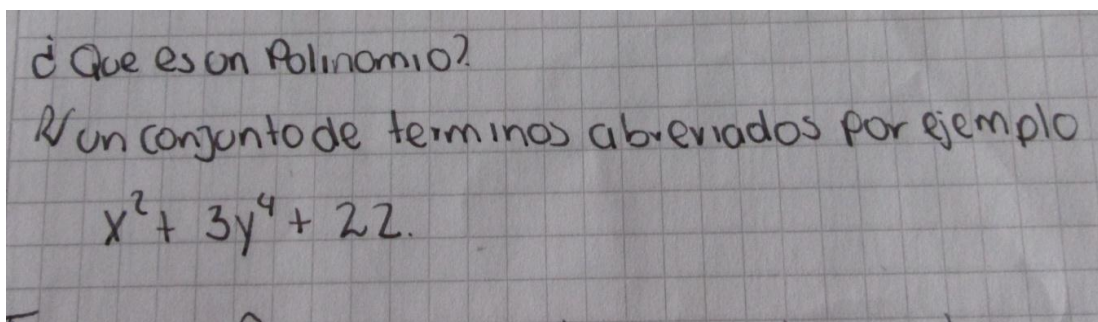 ¿Que es un Polinomio?
R/ un conjunto de terminos abreviados por ejemplo
x² + 3y⁴ + 2z.